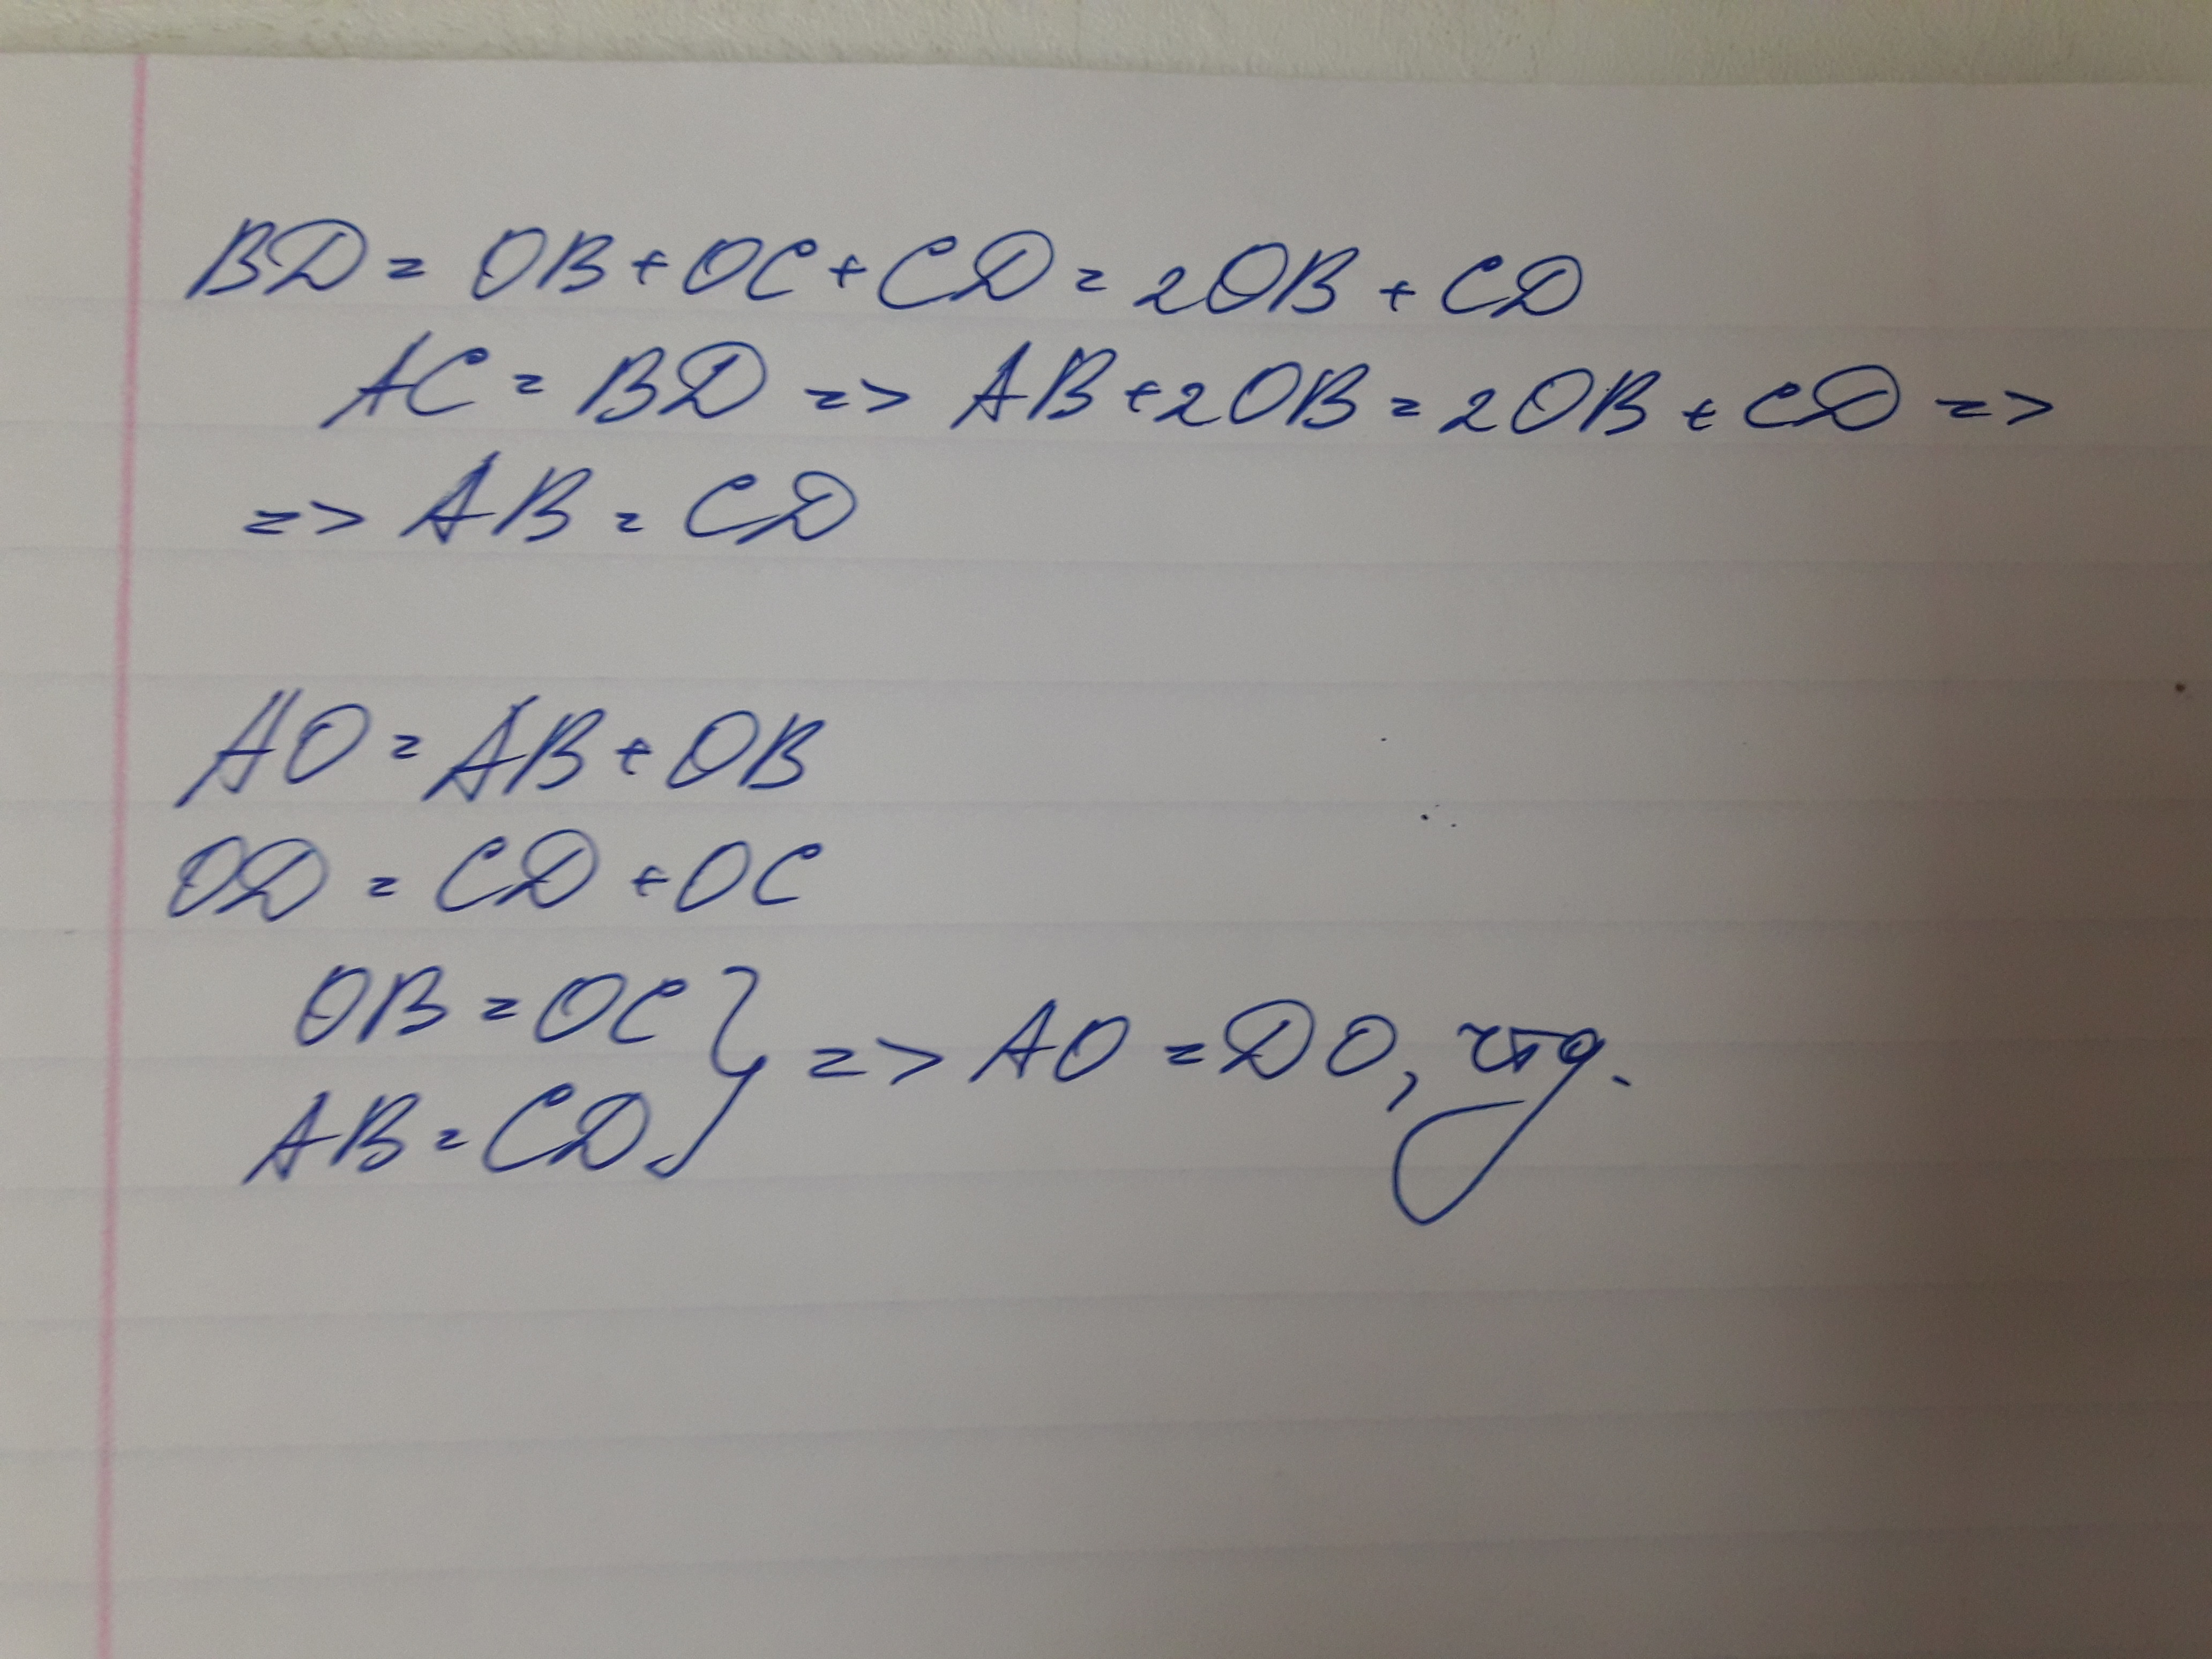 BD = OB + OC + CD = 2OB + CD
AC = BD => AB + 2OB = 2OB + CD =>
=> AB = CD
AO = AB + OB
OD = CD + OC
OB = OC
AB = CD } => AO = DO, чтд.